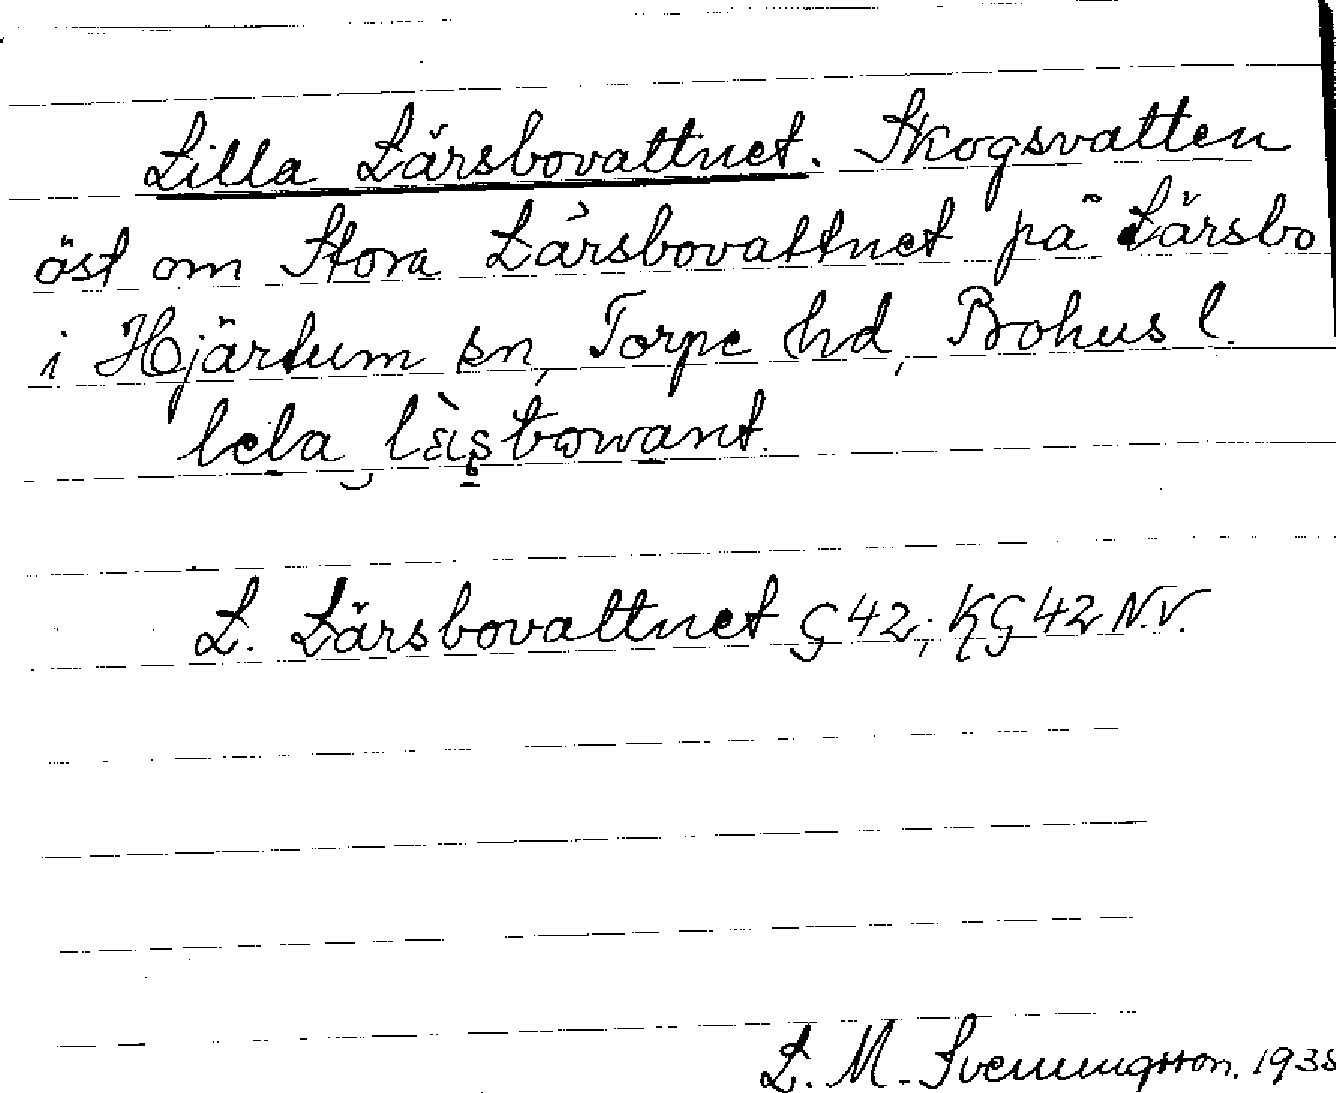 Lilla Lärsbovattnet. Skogsvatten
öst om Stora Lärsbovattnet på Lärsbo
i Hjärtum sn, Torpe hd, Bohus l.
L. Lärsbovattnet G 42; KG 42 N.V.
L. M. Svenningsson. 1935